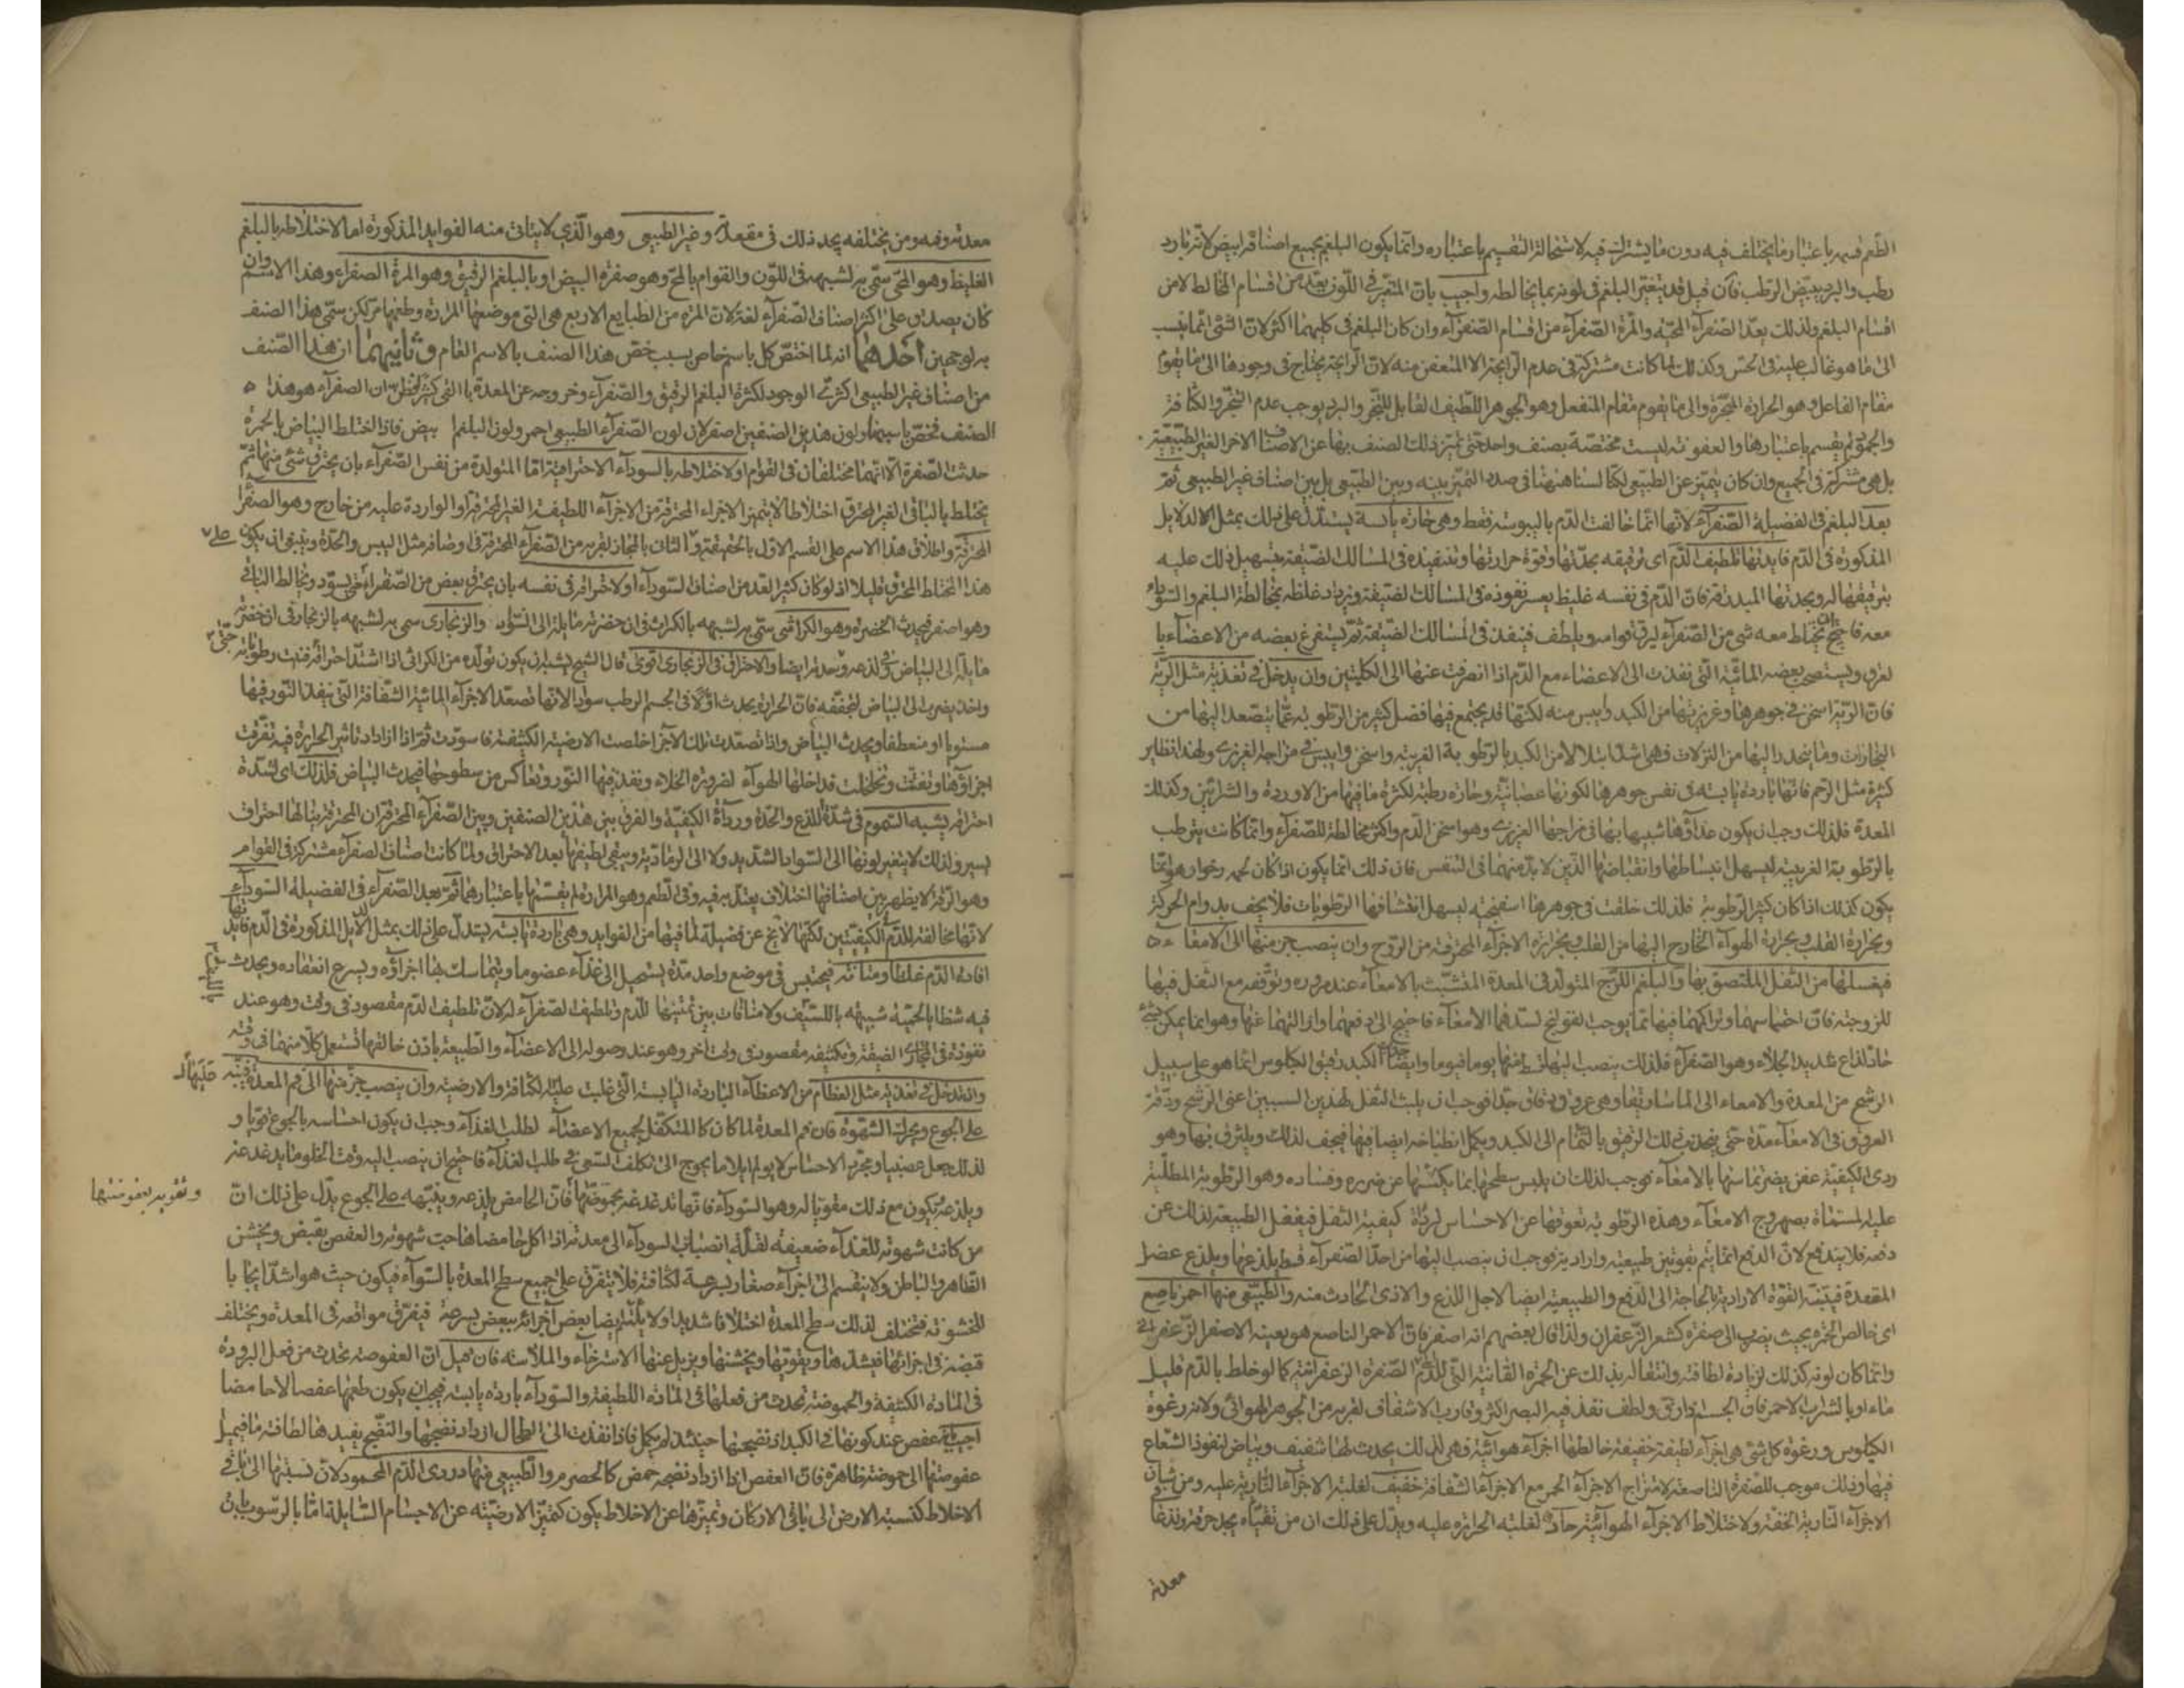 الطعم فيه باعتبار ما يختلف فيه دون ما يشترك فيه لاستحالة التقسيم باعتباره وانما يكون البلغم بجميع اصنافه ابيض لانه بارد
رطب والبرد يبيض الرطب فان قيل قد يتغير البلغم في لونه بما يخالطه واجيب بان المتغير في اللون يعد من اقسام المخالط لا من
اقسام البلغم ولذلك يعد الصفرآء المحية والمرة الصفرآء من اقسام الصفرآء وان كان البلغم في كليهما اكثر لان الشئ انما ينسب
الى ما هو غالب عليه في الحس وكذلك لما كانت مشتركة في عدم الرايحة الا المتعفن منه لان الرايحة يحتاج في وجودها الى ما يقوم
مقام الفاعل وهو الحرارة المبخرة والى ما يقوم مقام المنفعل وهو الجوهر اللطيف القابل للتبخر والبرد يوجب عدم التبخر والكثافة
والجمود لم يقسم باعتبارها والعفونة ليست مختصة بصنف واحد حتى تميز ذلك الصنف بها عن الاصناف الاخر الغير الطبيعية
بل هي مشتركة في الجميع وان كان يتميز عن الطبيعي لكنا لسنا ههنا في صدد التميز بينه وبين الطبيعي بل بين اصناف غير الطبيعي ثم
بعد البلغم في الفضيلة الصفرآء لانها انما خالفت الدم باليبوسة فقط وهي حارة يابسة يستدل على ذلك بمثل الدلايل
المذكورة في الدم فايدتها تلطيف الدم اى ترقيقه بحدتها وقوة حرارتها وتنفيذه في المسالك الضيقة بتسهيل ذلك عليه
بترقيقها له وبحدتها المبدرقة فان الدم في نفسه غليظ يعسر نفوذه في المسالك الضيقة ويزداد غلظه بمخالطة البلغم والسودآء
معه فاحتيج ان يختلط معه شئ من الصفرآء ليرق قوامه ويلطف فينفذ في المسالك الضيقة ثم يستفرغ بعضه من الاعضآء با
لعرق ويستصحب بعضه المائية التي نفذت الى الاعضاء مع الدم اذا انصرفت عنها الى الكليتين وان يدخل في تغذية مثل الرية
فان الرية اسخن في جوهرها وغريزتها من الكبد وايبس منه لكنها قد يجتمع فيها فضل كثير من الرطوبة عما يتصعد اليها من
البخارات وما ينحدر اليها من النزلات فهي اشد ابتلالا من الكبد بالرطوبة الغريبة واسخن وايبس في مزاجه الغريزى ولهذا نظاير
كثيرة مثل الرحم فانها باردة يابسة في نفس جوهرها لكونها عصبانية وحارة رطبة لكثرة ما فيها من الاوردة والشرايين وكذلك
المعدة فلذلك وجب ان يكون غذاؤها شبيها بها في مزاجها الغريزى وهو اسخن الدم واكثر مخالطة للصفرآء وانما كانت يترطب
بالرطوبة الغريبة ليسهل انبساطها وانقباضها الذين لا بد منهما في التنفس فان ذلك انما يكون اذا كان لحمه رخوا وهو انما
يكون كذلك اذا كان كثير الرطوبة فلذلك خلقت في جوهرها اسفنجية ليسهل انتشافها الرطوبات فلا يجف بدوام الحركة
وبحرارة القلب وبحرارة الهوآء الخارج اليها من القلب وبحرارة الاجزآء المحترقة من الروح وان ينصب جزء منها الى الامعآء
فيغسلها من الثفل الملتصق بها والبلغم اللزج المتولد في المعدة المتشبث بالامعآء عند مروره وتوقفه مع الثفل فيها
للزوجته فان احتباسهما وتراكمهما فيها مما يوجب القولنج لسدهما الامعاء فاحتيج الى دفعهما وازالتهما عنها وهو انما يمكن بشئ
حاد لذاع شديد الجلاء وهو الصفرآء فلذلك ينصب اليها قسط منها يوما فيوما وايضا جذب الكبد رقيق الكيلوس انما هو على سبيل
الرشح من المعدة والامعاء الى الماساريقا وهي عروق دقاق جدا فوجب ان يلبث الثفل لهذين السببين اعني الرشح ودقة
العروق في الامعآء مدة حتى ينجذب ذلك الرقيق بالتمام الى الكبد ويكمل انطباخه ايضا فيها فيجف لذلك ويلتزق بها وهو
ردى الكيفية عفن يضر بمماستها بالامعآء فوجب لذلك ان يلبس سطحها بما يكنها عن ضرره وفساده وهو الرطوبة المطلية
عليه المسماة بصهروج الامعآء وهذه الرطوبة تعوقها عن الاحساس لردآة كيفية الثفل فيغفل الطبيعة لذلك عن
دفعه فلا يندفع لان الدفع انما يتم بقوتين طبيعية وارادية فوجب ان ينصب اليها من احد الصفرآء قسط يلذعها ويلذع عضل
المقعدة فيتنبه القوة الارادية بالحاجة الى الدفع والطبيعية ايضا لاجل اللذع والاذى الحادث منه والطبيعي منها احمر ناصع
اى خالص الحمرة بحيث يضرب الى صفرة كشعر الزعفران ولذا قال بعضهم انه اصفر فان الاحمر الناصع هو بعينه الاصفر الزعفرانى
وانما كان لونه كذلك لزيادة لطافته وانتقاله بذلك عن الحمرة القانية التي للدم الى الصفرة الزعفرانية كما لو خلط بالدم قليل
ماء او بالشراب الاحمر فان الجسم اذا رق ولطف نفذ فيه البصر اكثر وقارب الاشفاف لقربه من الجوهر الهوائي ولانه رغوة
الكيلوس ورغوة كل شئ هي اجزآء لطيفة خفيفة خالطها اجزآء هوائية فهي لذلك يحدث لها شفيف وبياض لنفوذ الشعاع
فيها وذلك موجب للصفرة الناصعة لامتزاج الاجزآء الحمر مع الاجزآء الشفافة خفيف لغلبة الاجزآء النارية عليه ومن شان
الاجزآء النارية الخفة ولاختلاط الاجزآء الهوآئية حاد لغلبة الحرارة عليه ويدل على ذلك ان من تقيأه يجد حرقة ولذعا
معدته
معدته وفمه ومن يختلفه يجد ذلك في مقعدته وغير الطبيعي وهو الذي لا يتاتى منه الفوايد المذكورة اما لاختلاطه بالبلغم
الغليظ وهو المحى سمى به لشبهه في اللون والقوام بالمح وهو صفرة البيض او بالبلغم الرقيق وهو المرة الصفراء وهذا الاسم وان
كان يصدق على اكثر اصناف الصفرآء لغة لان المرة من الطبايع الاربع هي التي موضعها المرارة وطعمها مر لكن سمى هذا الصنف
به لوجهين احدهما انه لما اختص كل باسم خاص بسبب خص هذا الصنف بالاسم العام وثانيهما ان هذا الصنف
من اصناف غير الطبيعي اكثرى الوجود لكثرة البلغم الرقيق والصفرآء وخروجه عن المعدة بالقى كثير فظن ان الصفرآء هو هذا
الصنف فخص باسمها ولون هذين الصنفين اصفر لان لون الصفرآء الطبيعي احمر ولون البلغم ابيض فاذا اختلط البياض بالحمرة
حدثت الصفرة الا انهما مختلفان في القوام او لاختلاطه بالسودآء الاحتراقية اما المتولدة من نفس الصفرآء بان يحترق شئ منها ثم
يختلط بالباقي الغير المحترق اختلاطا لا يتميز الاجزاء المحترقة من الاجزآء اللطيفة الغير المحترقة او الواردة عليه من خارج وهو الصفرآء
المحترقة واطلاق هذا الاسم على القسم الاول بالحقيقة والثاني بالمجاز لقربه من الصفرآء المحترقة في اوصافه مثل اليبس والحدة وينبغي ان يكون على
هذا المخالط المحترق قليلا اذ لو كان كثيرا لعد من اصناف السودآء او لاحتراقه في نفسه بان يحترق بعض من الصفرآء حتى يسود ويخالط الباقي
وهو اصفر فيحدث الخضرة وهو الكراثي سمى به لشبهه بالكراث في ان خضرته مايلة الى السواد والزنجارى سمى به لشبهه بالزنجار في ان خضرته
مايلة الى البياض في لذعه وحدته ايضا والاحتراق في الزنجارى اقوى قال الشيخ يشبه ان يكون تولده من الكراثي اذا اشتد احتراقه حتى فنيت رطوباته
واخذ يضرب الى البياض لتجففه فان الحرارة يحدث اولا في الجسم الرطب سوادا لانها تصعد الاجزآء المائية الشفافة التي ينفذ النور فيها
مستويا او منعطفا ويحدث البياض واذا تصعدت تلك الاجزا خلصت الارضية الكثيفة فاسودت ثم اذا ازداد تاثير الحرارة فيه تفرقت
اجزاؤها وتفتتت وتخلخلت فداخلها الهوآء لضرورة الخلاء ونفذ فيها النور وتعاكس من سطوحها فيحدث البياض فلذلك اى لشدة
احتراقه يشبه السموم في شدة اللذع والحدة وردآة الكيفية والفرق بين هذين الصنفين وبين الصفرآء المحترقة ان المحترقة ينالها احتراق
يسير ولذلك لا يتغير لونها الى السواد الشديد ولا الى الرمادية ويبقى لطيفها بعد الاحتراق ولما كانت اصناف الصفرآء مشتركة في القوام
وهو الرقة لا يظهر بين اصنافها اختلاف يعتد به فيه وفي الطعم وهو المرارة لم يقسمها باعتبارهما ثم بعد الصفرآء في الفضيلة السودآء
لانها مخالفة للدم في الكيفيتين لكنها لا تخ عن فضيلة لما فيها من الفوايد وهي باردة يابسة يستدل على ذلك بمثل الدلايل المذكورة في الدم فايدتها
افادة الدم غلظا ومتانة فيحتبس في موضع واحد مدة يستحيل الى غذآء عضو ما ويتماسك بها اجزآؤه ويسرع انعقاده ويحدث
فيه شظايا لحمية شبيهة بالليف ولا منافات بين تمتينها للدم وتلطيف الصفرآء له لان تلطيف الدم مقصود في وقت وهو عند
نفوذه في المجارى الضيقة وتكثيفه مقصود في وقت آخر وهو عند وصوله الى الاعضآء والطبيعة باذن خالقها تستعمل كلا منهما في وقته
وان تدخل في تغذية مثل العظام من الاعضآء الباردة اليابسة التي غلبت عليه الكثافة والارضية وان ينصب جزء منها الى فم المعدة فينبه
على الجوع ويحرك الشهوة فان فم المعدة لما كان كالمتكفل لجميع الاعضآء لطلب الغذآء وجب ان يكون احساسه بالجوع قويا و
لذلك جعل عصبيا ومجرد الاحساس لا يؤلم ايلاما يحوج الى تكلف السعى في طلب الغذآء فاحتيج ان ينصب اليه وقت الخلو ما يدغدغه
ويلذعه ويكون مع ذلك مقويا له وهو السودآء فانها تدغدغه بحموضتها فان الحامض يلذعه وينبهه على الجوع يدل على ذلك ان
وتقويه بعفوصتها
من كانت شهوته للغذآء ضعيفة لقلة انصباب السودآء الى معدته اذا اكل حامضا هاجت شهوته والعفص يقبض ويخشن
الظاهر والباطن ولا ينقسم الى اجزآء صغار بسرعة لكثافته فلا يتفرق على جميع سطح المعدة بالسوآء فيكون حيث هو اشد ايجابا
للخشونة فيختلف لذلك سطح المعدة اختلافا شديدا ولا يلتئم ايضا بعض اجزائه ببعض بسرعة فيفرق مواقعه في المعدة ويختلف
قبضه في اجزائها فيشدها ويقويها ويخشنها ويزيل عنها الاسترخآء والملاسة فان قيل ان العفوصة يحدث من فعل البرودة
في المادة الكثيفة والحموضة تحدث من فعلها في المادة اللطيفة والسودآء باردة يابسة فيجب ان يكون طعمها عفصا لا حامضا
اجيب بانه عفص عند كونها في الكبد اذ نضجها حينئذ لم يكمل فاذا نفذت الى الطحال ازداد نضجها والنضج يفيدها لطافة ما فيميل
عفوصتها الى حموضة ظاهرة فان العفص اذا ازداد نضجه حمض كالحصرم والطبيعي منها دردى الدم المحمود لان نسبتها الى باقي
الاخلاط كنسبة الارض الى باقي الاركان وتميزها عن الاخلاط يكون كتميز الارضية عن الاجسام السايلة اما بالرسوب بان